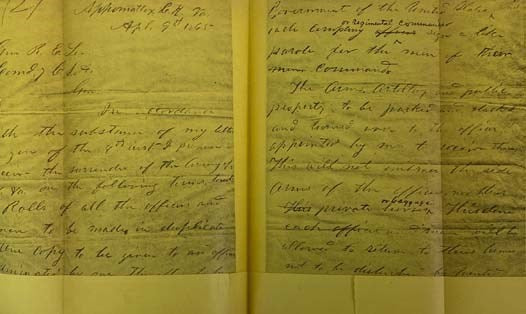 Appomattox C.H. Va.
Apl. 9th 1865
Gen. R. E. Lee
Comdg C.S.A.
Gen.
In accordance
th the substance of my letter
you of the 8th inst. I propose
ceive the surrender of the Army of
Va. on the following terms, to wit
Rolls of all the officers and
men to be made in duplicate
One copy to be given to an officer
by me. The
Government of the United States
or regimental commander
each company officer sign a like
parole for the men of their
commands
The Arms, Artillery and public
property to be parked and stacked
and turned over to the officer
appointed by me to receive them
This will not embrace the side
Arms of the officers, nor their
or baggage
private horses This done
each officer and man will be
allowed to return to their homes
not to be disturbed by United